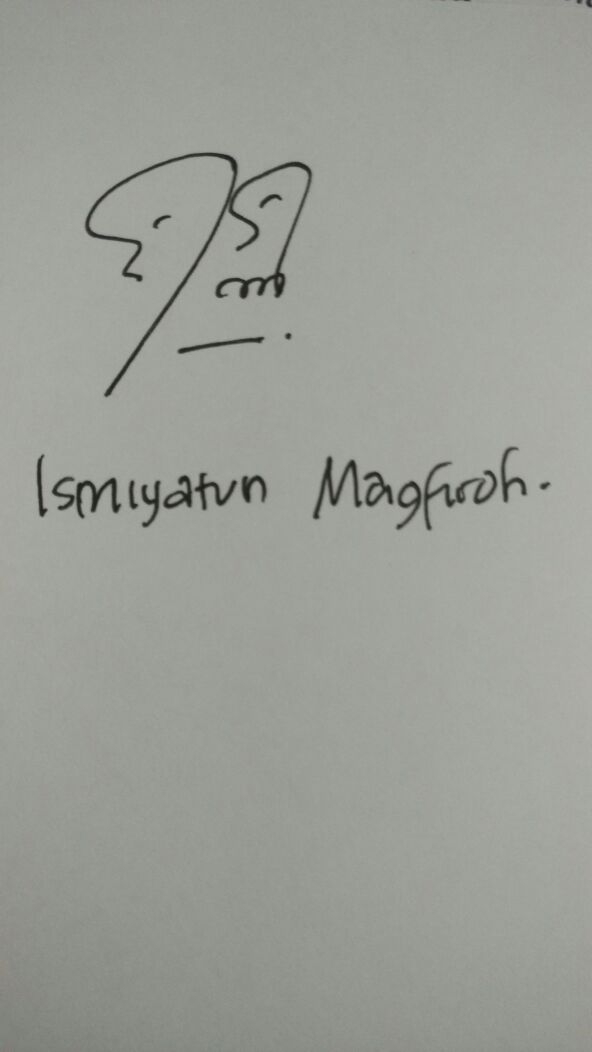 Ismiyatun Magfiroh.